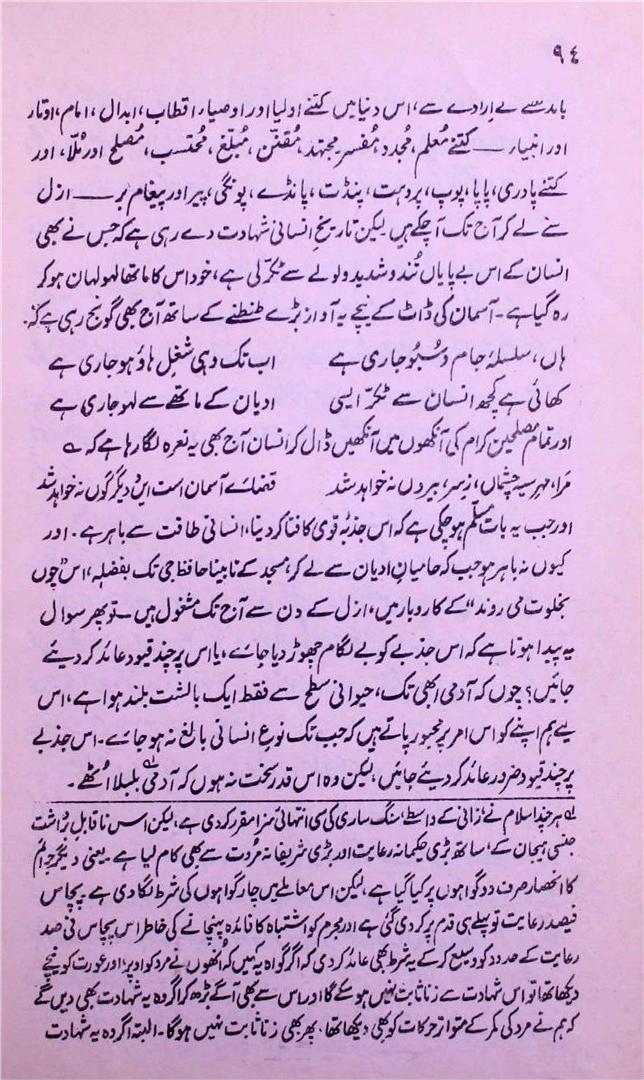 ۹۴
باید سے بے ارادے سے، اس دنیا میں کتنے اولیا اور اوصیا، اقطاب، ابدال، امام، اوتار
اور انبیاء ــــ کتنے مُعلم، مُجدد، مُفسر، مجتہد، مُقنّن، مُبلّغ، مُحتسب، مُصلح اور مُلّا، اور
کتنے پادری، پاپا، پوپ، پروہت، پنڈت، پانڈے، پونگی، پیر اور پیغام بر ــــ ازل
سے لے کر آج تک آ چکے ہیں لیکن تاریخِ انسانی شہادت دے رہی ہے کہ جس نے بھی
انسان کے اس بے پایاں تُند و شدید ولولے سے ٹکر لی ہے، خود اس کا ماتھا لہولہان ہو کر
رہ گیا ہے۔ آسمان کی ڈاٹ کے نیچے یہ آواز بڑے طنطنے کے ساتھ آج بھی گونج رہی ہے کہ:
ہاں، سلسلۂ جام و سُبو جاری ہے اب تک وہی شغلِ ہاؤ ہو جاری ہے
کھائی ہے کچھ انسان سے ٹکر ایسی ادیان کے ماتھے سے لہو جاری ہے
اور تمام مصلحینِ کرام کی آنکھوں میں آنکھیں ڈال کر انسان آج بھی یہ نعرہ لگا رہا ہے کہ ؎
مَرا، مہرِ سیہ چشماں، زِسر، بیروں نہ خواہد شد قضائے آسمان است ایں و دیگرگوں نہ خواہد شد
اور جب یہ بات مسلّم ہو چکی ہے کہ اس جذبۂ قوی کا فنا کر دینا، انسانی طاقت سے باہر ہے۔ اور
کیوں نہ باہر ہو جب کہ حامیانِ ادیان سے لے کر، مسجد کے نابینا حافظ جی تک بفضلہٖ، اس "چوں
بخلوت می روند" کے کاروبار میں، ازل کے دن سے آج تک مشغول ہیں ــ تو پھر سوال
یہ پیدا ہوتا ہے کہ اس جذبے کو بے لگام چھوڑ دیا جائے، یا اس پر چند قیود عائد کر دیئے
جائیں؟ چوں کہ آدمی ابھی تک، حیوانی سطح سے فقط ایک بالشت بلند ہوا ہے، اس
لیے ہم اپنے کو اس امر پر مجبور پاتے ہیں کہ جب تک نوعِ انسانی بالغ نہ ہو جائے۔ اس جذبے
پر چند قیود ضرور عائد کر دیئے جائیں، لیکن وہ اس قدر سخت نہ ہوں کہ آدمی بلبلا اُٹھے۔
؎ ہر چند اسلام نے زانی کے واسطے سنگ ساری کی سی انتہائی سزا مقرر کر دی ہے، لیکن اس ناقابلِ برداشت
جنسی ہیجان کے ساتھ بڑی حکیمانہ رعایت اور بڑی شریفانہ مُروت سے بھی کام لیا ہے۔ یعنی دیگر جرائم
کا انحصار صرف دو گواہوں پر کیا گیا ہے، لیکن اس معاملے میں چار گواہوں کی شرط لگا دی ہے۔ پچاس
فیصد رعایت تو پہلے ہی قدم پر کر دی گئی ہے اور مجرم کو اشتباہ کا فائدہ پہنچانے کی خاطر اس پچاس فی صد
رعایت کے حدود کو وسیع کر کے یہ شرط بھی عائد کر دی کہ اگر گواہ یہ کہیں کہ اُنھوں نے مرد کو اوپر اور عورت کو نیچے
دیکھا تھا تو اس شہادت سے زنا ثابت نہیں ہو سکے گا اور اس سے بھی آگے بڑھ کر اگر وہ یہ شہادت بھی دیں گے
کہ ہم نے مرد کی کمر کے متواتر حرکات کو بھی دیکھا تھا، پھر بھی زنا ثابت نہیں ہوگا۔ البتہ اگر وہ یہ شہادت